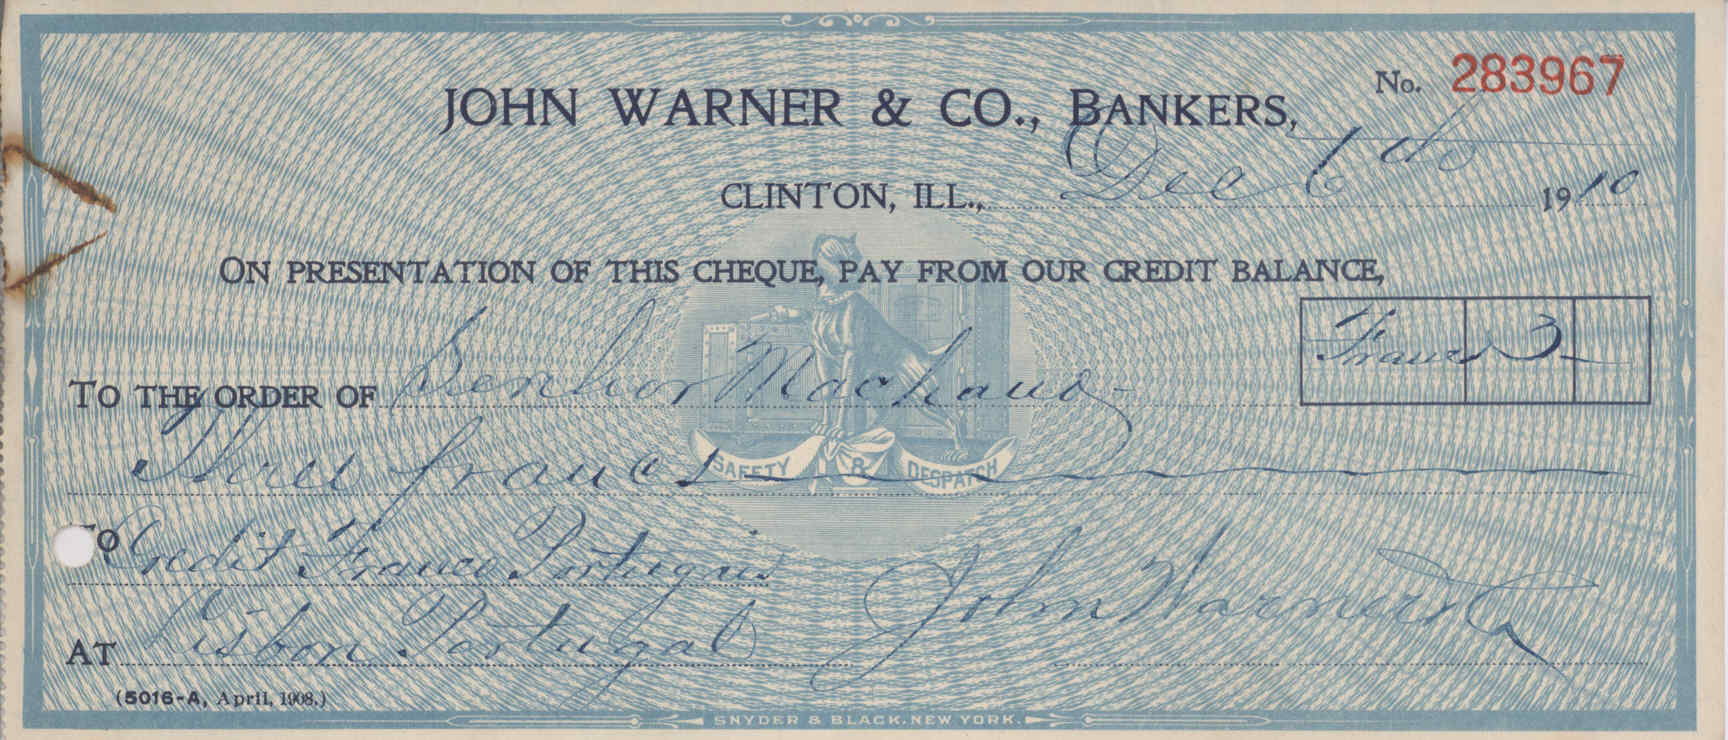 No. 283967
JOHN WARNER & CO., BANKERS,
CLINTON, ILL., Dec 6th 1910
ON PRESENTATION OF THIS CHEQUE, PAY FROM OUR CREDIT BALANCE,
Francs 3
TO THE ORDER OF Senhor Machaus
Three francs
SAFETY & DESPATCH
TO Credit France Portuguis
AT Lisbon Portugal
John Warner & Co
(5016-A, April, 1908.)
SNYDER & BLACK. NEW YORK.